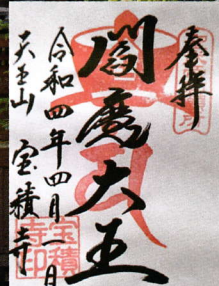 奉拝
閻魔大王
令和四年四月一日
天王山 宝積寺
宝積
寺印